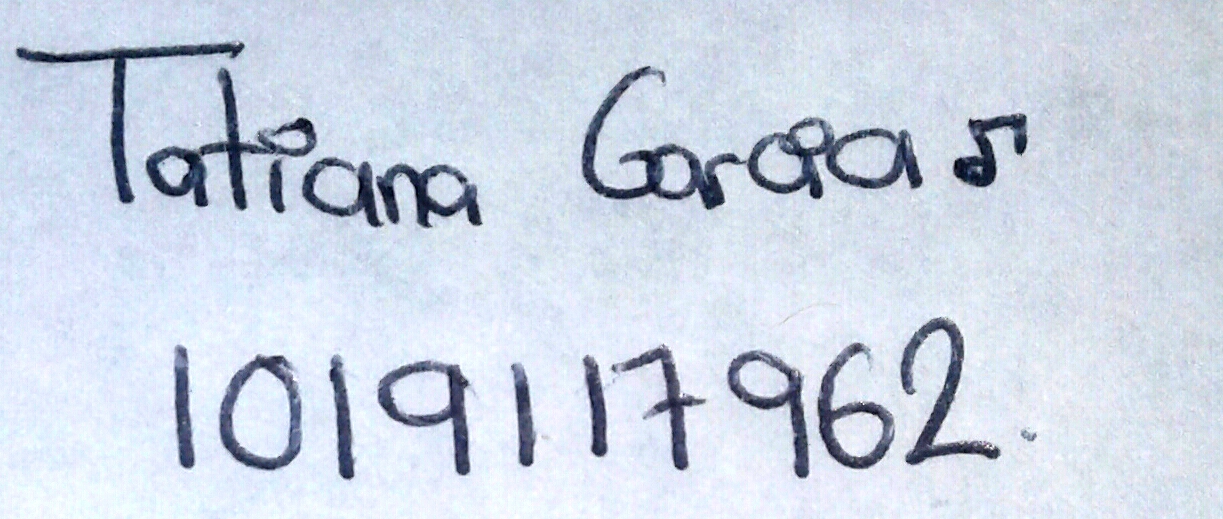 Tatiana Garcia♫
1019117962.